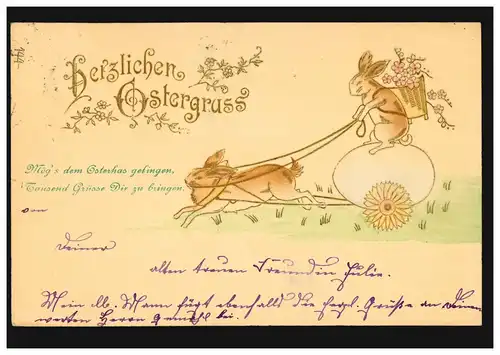 Herzlichen
Ostergruss
Mög's dem Osterhas gelingen,
Tausend Grüsse Die zu bringen.
von
Deiner
alten treuen Freundin Julie.
Mein lb. Mann fügt ebenfalls die herzl. Grüße an Deinen
werten Herrn Gemahl bei.